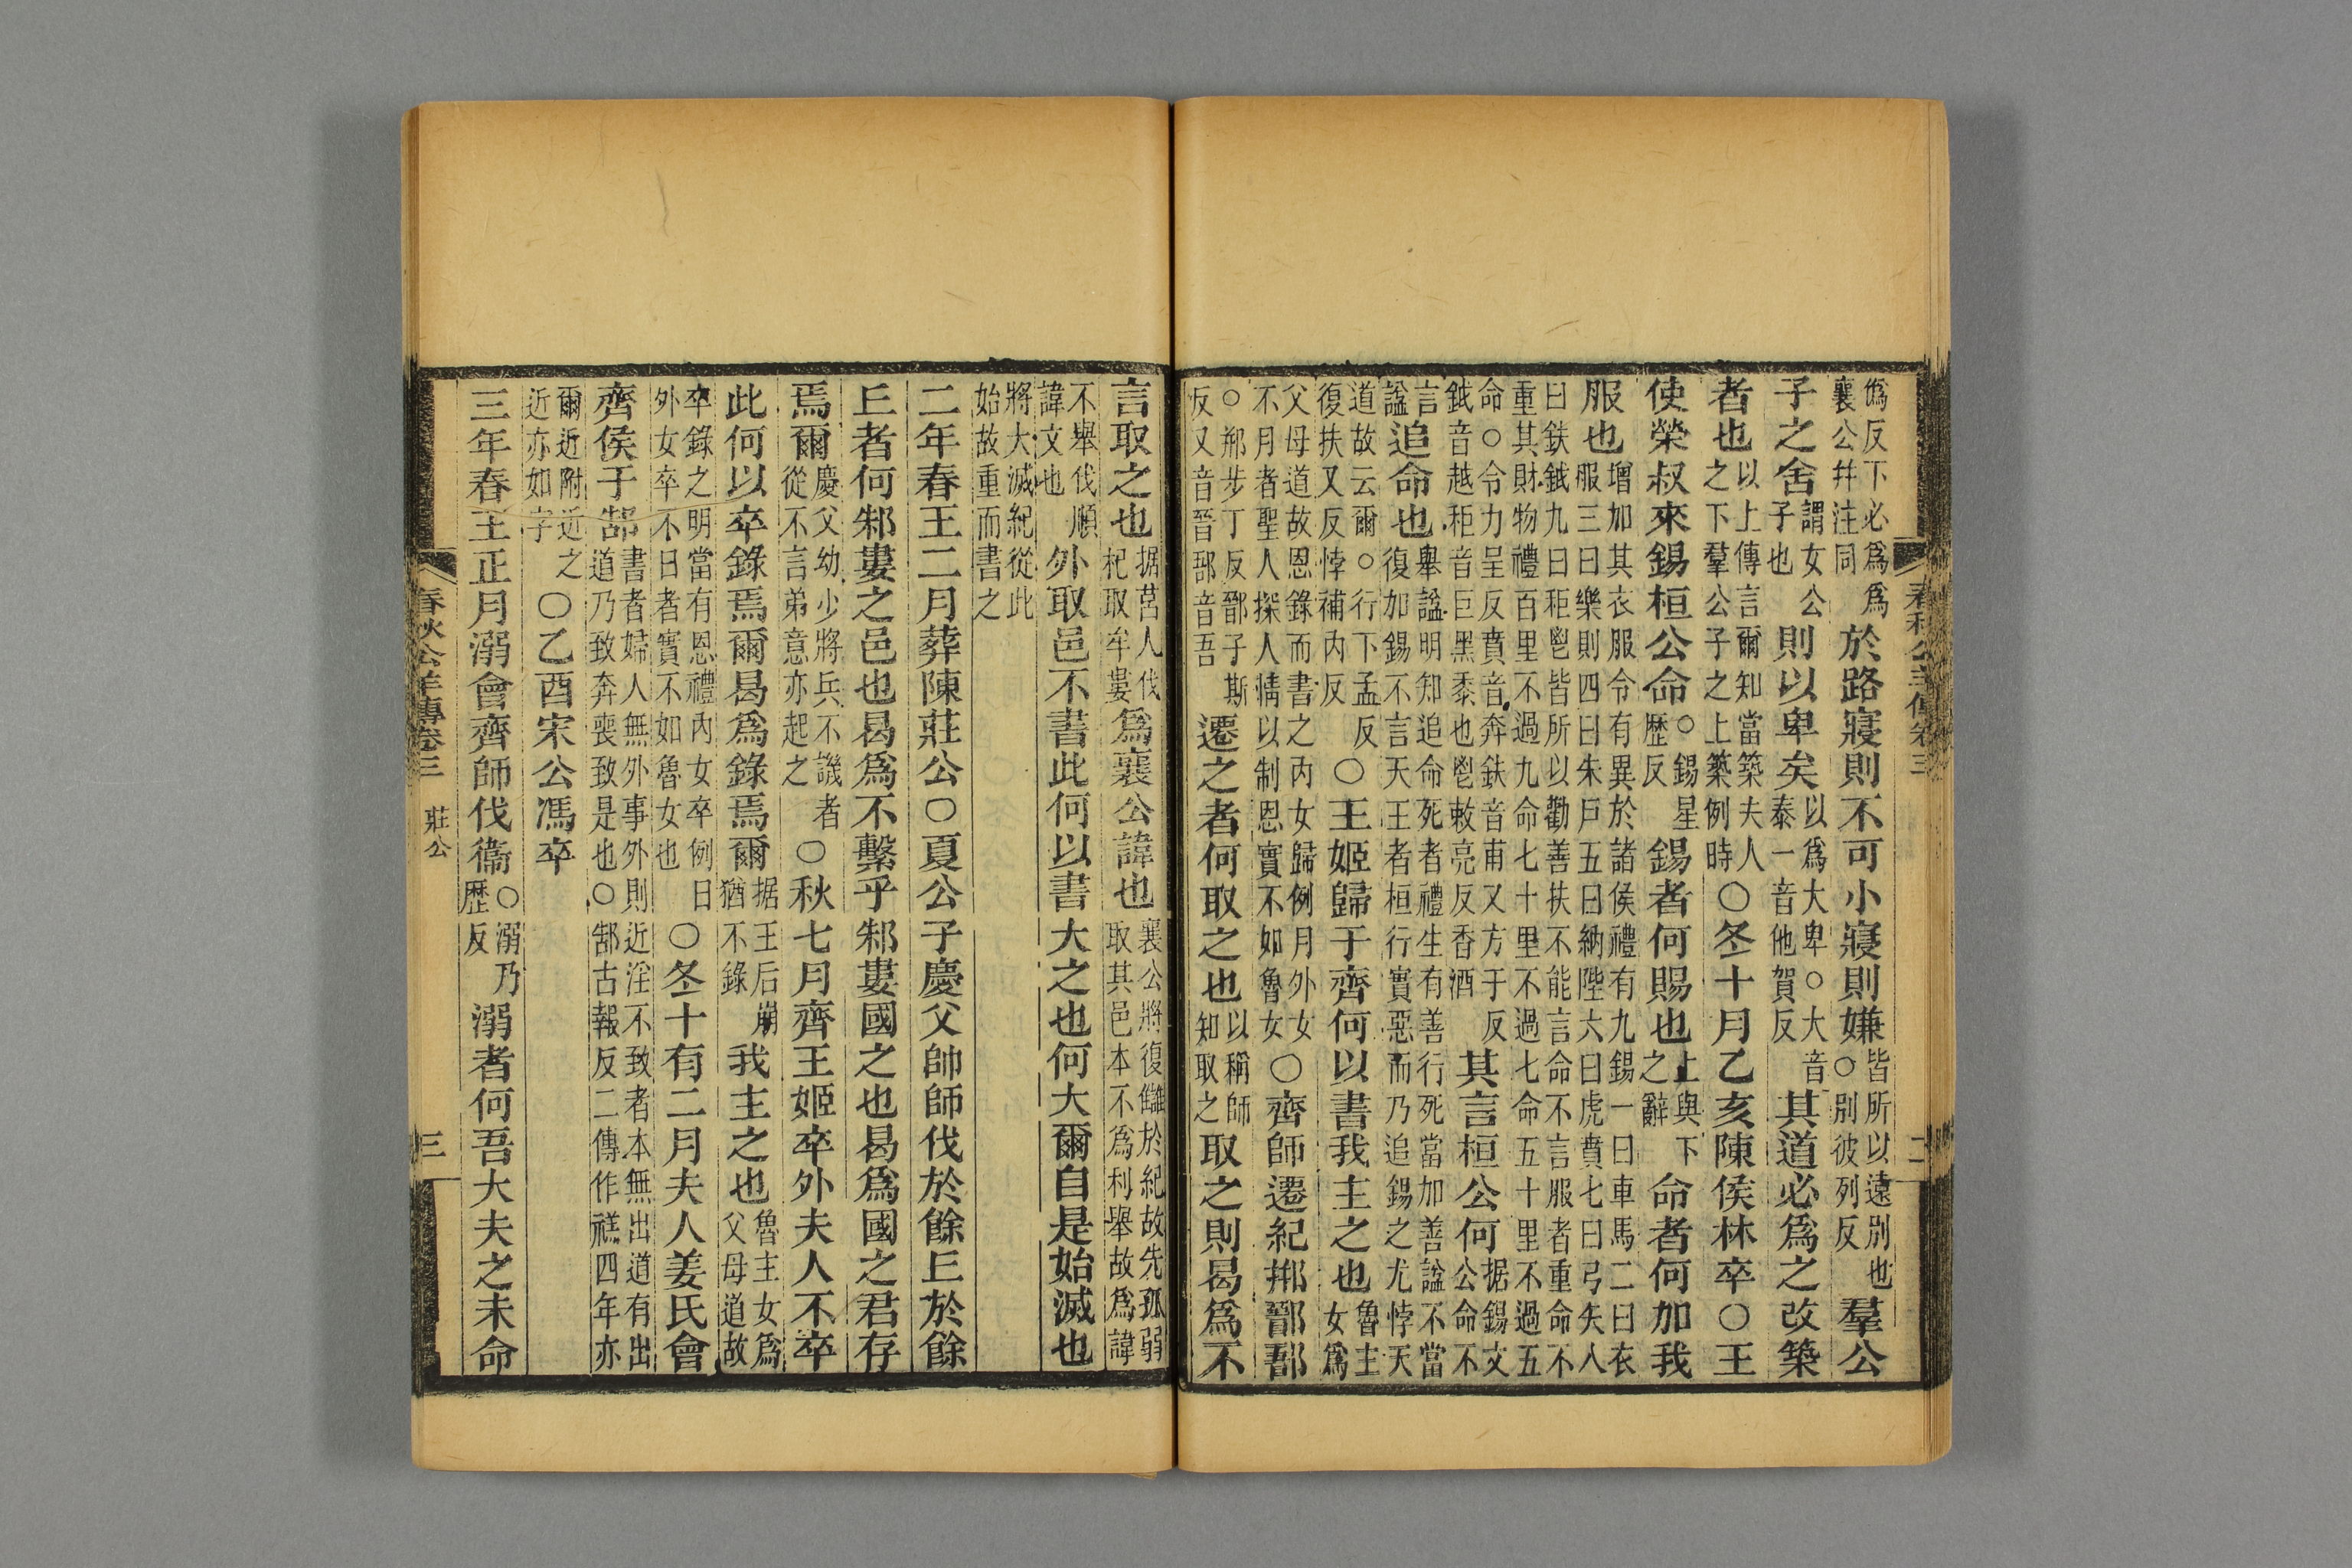 僞反下必爲爲
襄公幷注同
於路寢則不可小寢則嫌
皆所以遠別也
○別彼列反
羣公
子之舍
謂女公
子也
則以卑矣
以爲大卑○大音
泰一音他賀反
其道必爲之改築
者也
以上傳言爾知當築夫人
之下羣公子之上築例時
○冬十月乙亥陳侯林卒○王
使榮叔來錫桓公命
○錫星
歷反
錫者何賜也
上與下
之辭
命者何加我
服也
增加其衣服令有異於諸侯禮有九錫一曰車馬二曰衣
服三曰樂則四曰朱戶五曰納陛六曰虎賁七曰弓矢八
曰鈇鉞九曰秬鬯皆所以勸善扶不能言命不言服者重命不
重其財物禮百里不過九命七十里不過七命五十里不過五
命○令力呈反賁音奔鈇音甫又方于反
鉞音越秬音巨黑黍也鬯敕亮反香酒
其言桓公何
据錫文
公命不
言
謚
追命也
舉謚明知追命死者禮生有善行死當加善謚不當
復加錫不言天王者桓行實惡而乃追錫之尤悖天
道故云爾○行下孟反
復扶又反悖補內反
○王姬歸于齊何以書我主之也
魯主
女爲
父母道故恩錄而書之內女歸例月外女
不月者聖人探人情以制恩實不如魯女
○齊師遷紀郱鄑郚
○郱步丁反鄑子斯
反又音晉郚音吾
遷之者何取之也
以稱師
知取之
取之則曷爲不
言取之也
据莒人伐
杞取牟婁
爲襄公諱也
襄公將復讎於紀故先孤弱
取其邑本不爲利舉故爲諱
不舉伐順
諱文也
外取邑不書此何以書大之也何大爾自是始滅也
將大滅紀從此
始故重而書之
二年春王二月葬陳莊公○夏公子慶父帥師伐於餘丘於餘
丘者何邾婁之邑也曷爲不繫乎邾婁國之也曷爲國之君存
焉爾
慶父幼少將兵不譏者
從不言弟意亦起之
○秋七月齊王姬卒外夫人不卒
此何以卒錄焉爾曷爲錄焉爾
据王后崩
猶不錄
我主之也
魯主女爲
父母道故
卒錄之明當有恩禮內女卒例日
外女卒不日者實不如魯女也
○冬十有二月夫人姜氏會
齊侯于郜
書者婦人無外事外則近淫不致者本無出道有出
道乃致奔喪致是也○郜古報反二傳作禚四年亦
爾近附近之
近亦如字
○乙酉宋公馮卒
三年春王正月溺會齊師伐衞
○溺乃
歷反
溺者何吾大夫之未命
春秋公羊傳卷三
二
春秋公羊傳卷三
莊公
三